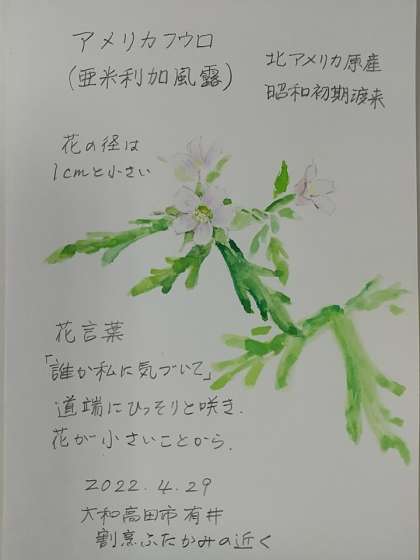 アメリカフウロ
(亜米利加風露)
北アメリカ原産
昭和初期渡来
花の径は
1cmと小さい
花言葉
「誰か私に気づいて」
道端にひっそりと咲き.
花が小さいことから.
2022.4.29
大和高田市有井
割烹ふたかみの近く